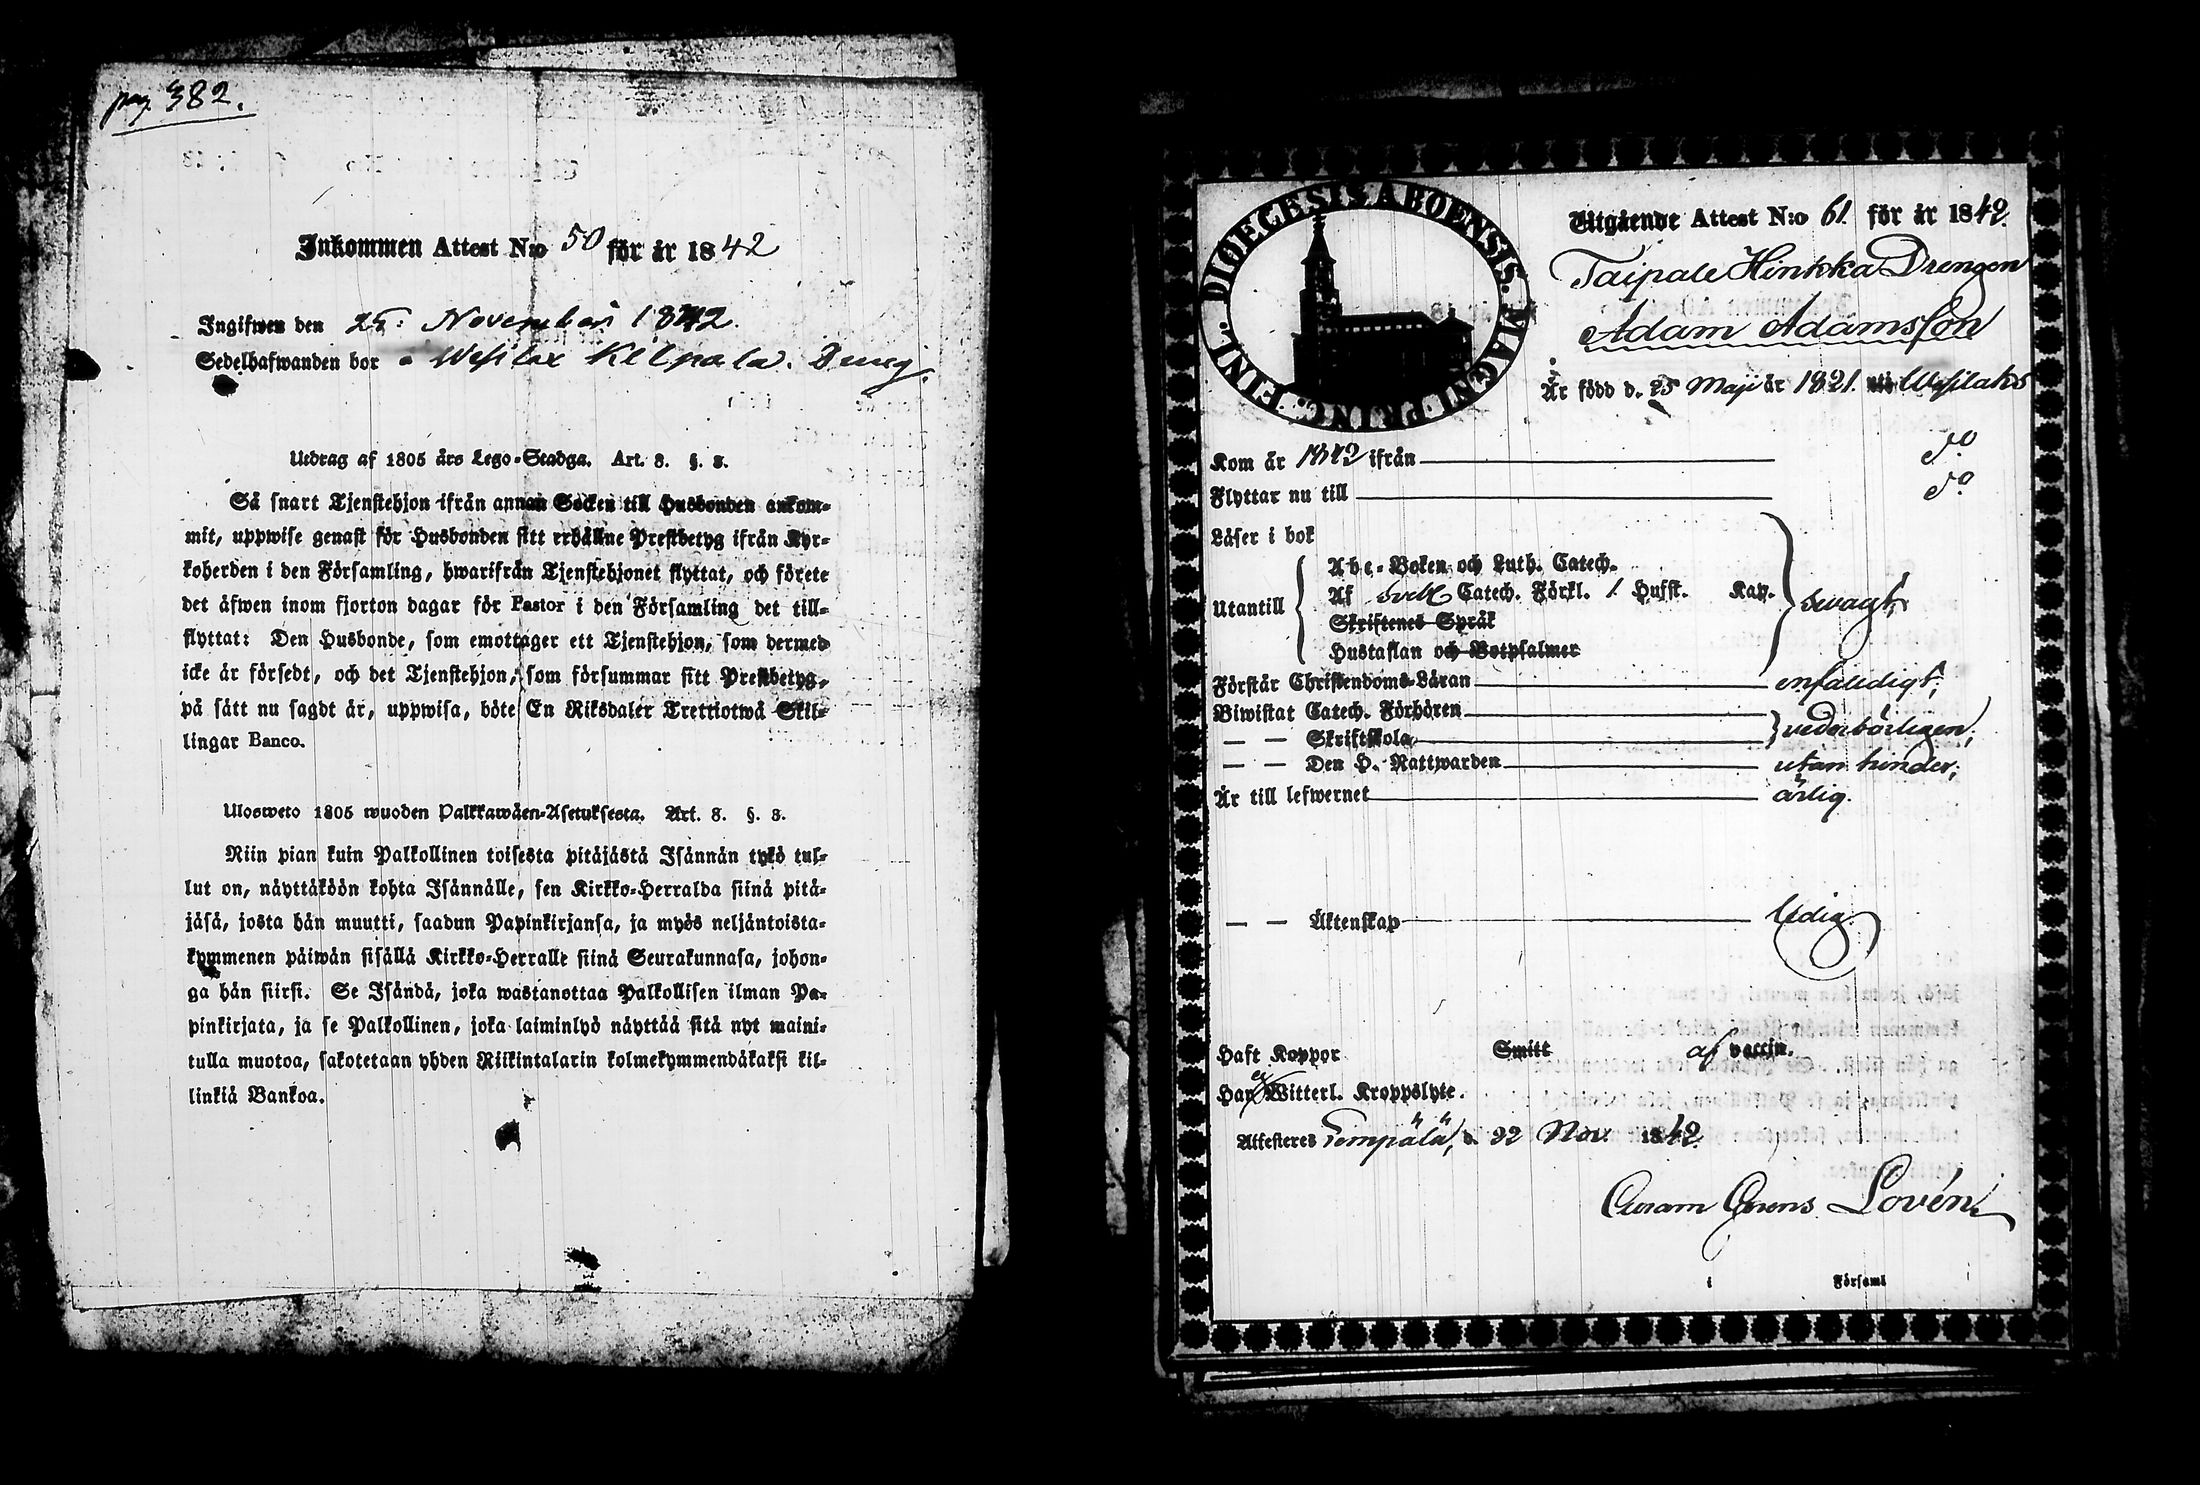 pag. 382.
Inkommen Attest N:o 50 för år 1842
Ingifwen den 25: November 1842.
Sedelhafwanden bor å Wesilax Kelpala. Dreng.
Utdrag af 1805 års Lego-Stadga. Art. 8. §. 8.
Så snart Tjenstehjon ifrån annan Socken till Husbonden ankom-
mit, uppwise genast för Husbonden sitt erhållne Prestbetyg ifrån Kyr-
koherden i den Församling, hwarifrån Tjenstehjonet flyttat, och förete
det äfwen inom fjorton dagar för Pastor i den Församling det till-
flyttat: Den Husbonde, som emottager ett Tjenstehjon, som dermed
icke är försedt, och det Tjenstehjon, som försummar sitt Prestbetyg,
på sätt nu sagdt är, uppwisa, böte En Riksdaler Trettiotwå Skil-
lingar Banco.
Ulosweto 1805 wuoden Palkkawäen-Asetuksesta. Art. 8. §. 8.
Niin pian kuin Palkollinen toisesta pitäjästä Isännän tykö tul-
lut on, näyttäköön kohta Isännälle, sen Kirkko-Herralda siinä pitä-
jäsä, josta hän muutti, saadun Papinkirjansa, ja myös neljäntoista-
kymmenen päiwän sisällä Kirkko-Herralle siinä Seurakunnasa, johon-
ga hän siirsi. Se Isändä, joka wastanottaa Palkollisen ilman Pa-
pinkirjata, ja se Palkollinen, joka laiminlyö näyttää sitä nyt maini-
tulla muotoa, sakotetaan yhden Riikintalarin kolmekymmendäkaksi kil-
linkiä Bankoa.
DIOECESIS ABOENSIS. MAGNI PRINC. FINL.
Utgående Attest N:o 61. för år 1842.
Taipale Hinkka Drengen
Adam Adamsson
Är född d. 25 Maji år 1821. uti Wesilaks
Kom år 1842 ifrån d:o
Flyttar nu till d:o
Läser i bok
Utantill
Abc-Boken och Luth. Catech.
Af Catech. Förkl. 1 Hufst. Kap.
Skriftenes Språk
Hustaflan och Botpsalmer
swagt;
Förstår Christendoms-Läran enfaldigt;
Biwistat Catech. Förhören
— — Skriftskola wederbörligen;
— — Den H. Nattwarden utan hinder;
Är till lefwernet ärlig.
— — Äktenskap ledig.
Haft Koppor Smitt af vaccin.
Har ej Witterl. Kroppslyte.
Attesteres Lempälä, d. 22 Nov. 1842.
Curam Gerens Lovén.
i Församl